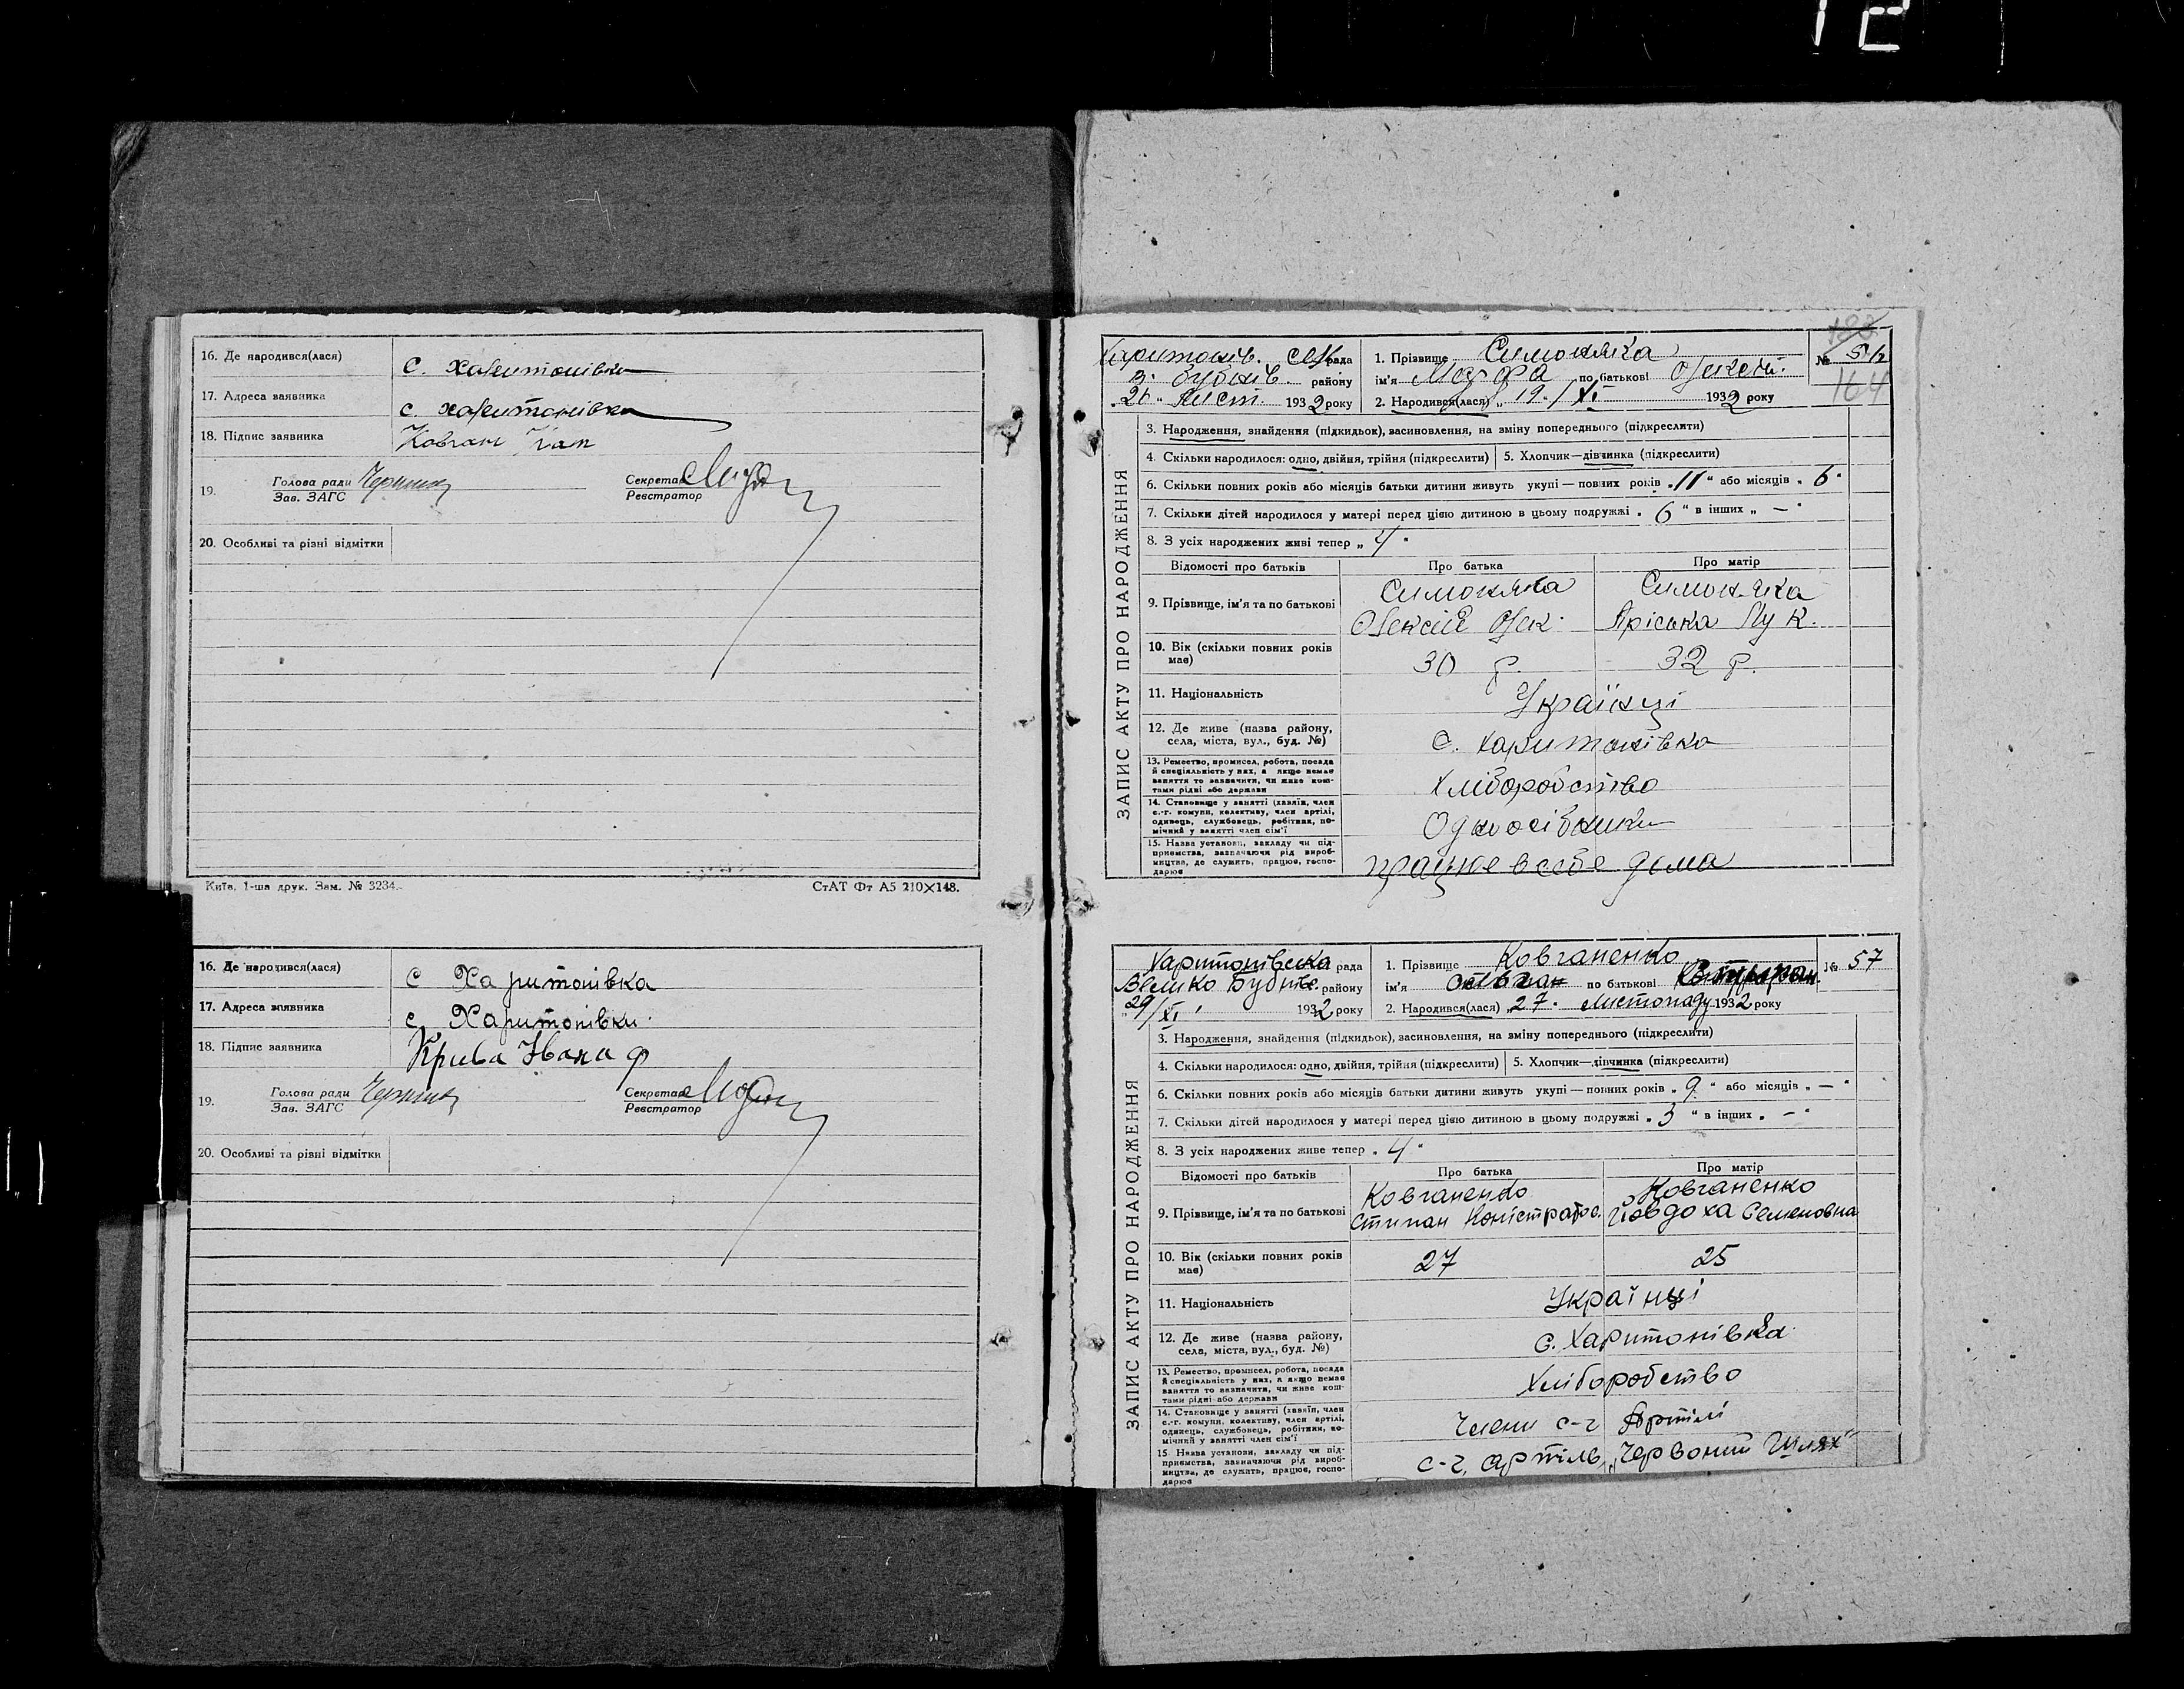 12
16. Де народився(лася) с. Харитонівка
17. Адреса заявника с. Харитонівка
18. Підпис заявника Ковган Іван
19. Голова ради
Зав. ЗАГС
Секретар
Реєстратор
20. Особливі та різні відмітки
Київ, 1-ша друк. Зам. № 3234.
СтАТ Фт А5 210×148.
16. Де народився(лася) с Харитонівка
17. Адреса заявника с. Харитонівка
18. Підпис заявника Крива Івана ф
19. Голова ради
Зав. ЗАГС
Секретар
Реєстратор
20. Особливі та різні відмітки
ЗАПИС АКТУ ПРО НАРОДЖЕННЯ
Харитонів. сіл рада
В. Бубнів. району
"26" Лист. 1932 року
1. Прізвище Симоняка
ім'я Марфа по батькові Олексій.
2. Народився(лася) "19./XI 1932 року
№ 56
164
3. Народження, знайдення (підкидьок), засиновлення, на зміну попереднього (підкреслити)
4. Скільки народилося: одно, двійня, трійня (підкреслити) 5. Хлопчик—дівчинка (підкреслити)
6. Скільки повних років або місяців батьки дитини живуть укупі — повних років „11" або місяців „6"
7. Скільки дітей народилося у матері перед цією дитиною в цьому подружжі „6" в інших „—"
8. З усіх народжених живі тепер „4"
Відомості про батьків Про батька Про матір
9. Прізвище, ім'я та по батькові Симоняка Симоняка
Олексій Олек. Пріська Лук.
10. Вік (скільки повних років має) 30 р. 32 р.
11. Національність Українці
12. Де живе (назва району, села, міста, вул., буд. №) с. Харитонівка
13. Ремество, промисел, робота, посада й спеціяльність у них, а якщо немає заняття то зазначити, чи живе коштами рідні або держави Хліборобство
14. Становище у занятті (хазяїн, член с.-г. комуни, колективу, член артілі, одинець, службовець, робітник, помічний у занятті член сім'ї Одноосібники
15. Назва установи, закладу чи підприємства, зазначаючи рід виробництва, де служить, працює, господарює працює в себе дома
ЗАПИС АКТУ ПРО НАРОДЖЕННЯ
Харитонівська рада
Велико Бубнів. району
29/XI 1932 року
1. Прізвище Ковганенко
ім'я по батькові
2. Народився(лася) „27" листопаду 1932 року
№ 57
3. Народження, знайдення (підкидьок), засиновлення, на зміну попереднього (підкреслити)
4. Скільки народилося: одно, двійня, трійня (підкреслити) 5. Хлопчик—дівчинка (підкреслити)
6. Скільки повних років або місяців батьки дитини живуть укупі — повних років „9" або місяців „—"
7. Скільки дітей народилося у матері перед цією дитиною в цьому подружжі „3" в інших „—"
8. З усіх народжених живе тепер „4"
Відомості про батьків Про батька Про матір
9. Прізвище, ім'я та по батькові Ковганенко Ковганенко
Степан Коністратов. Йовдоха Семеновна
10. Вік (скільки повних років має) 27 25
11. Національність Українці
12. Де живе (назва району, села, міста, вул., буд. №) с. Харитонівка
13. Ремество, промисел, робота, посада й спеціяльність у них, а якщо немає заняття то зазначити, чи живе коштами рідні або держави Хліборобство
14. Становище у занятті (хазяїн, член с.-г. комуни, колективу, член артілі, одинець, службовець, робітник, помічний у занятті член сім'ї Члени с-г Артілі
15. Назва установи, закладу чи підприємства, зазначаючи рід виробництва, де служить, працює, господарює с-г. артіль „Червоний Шлях"